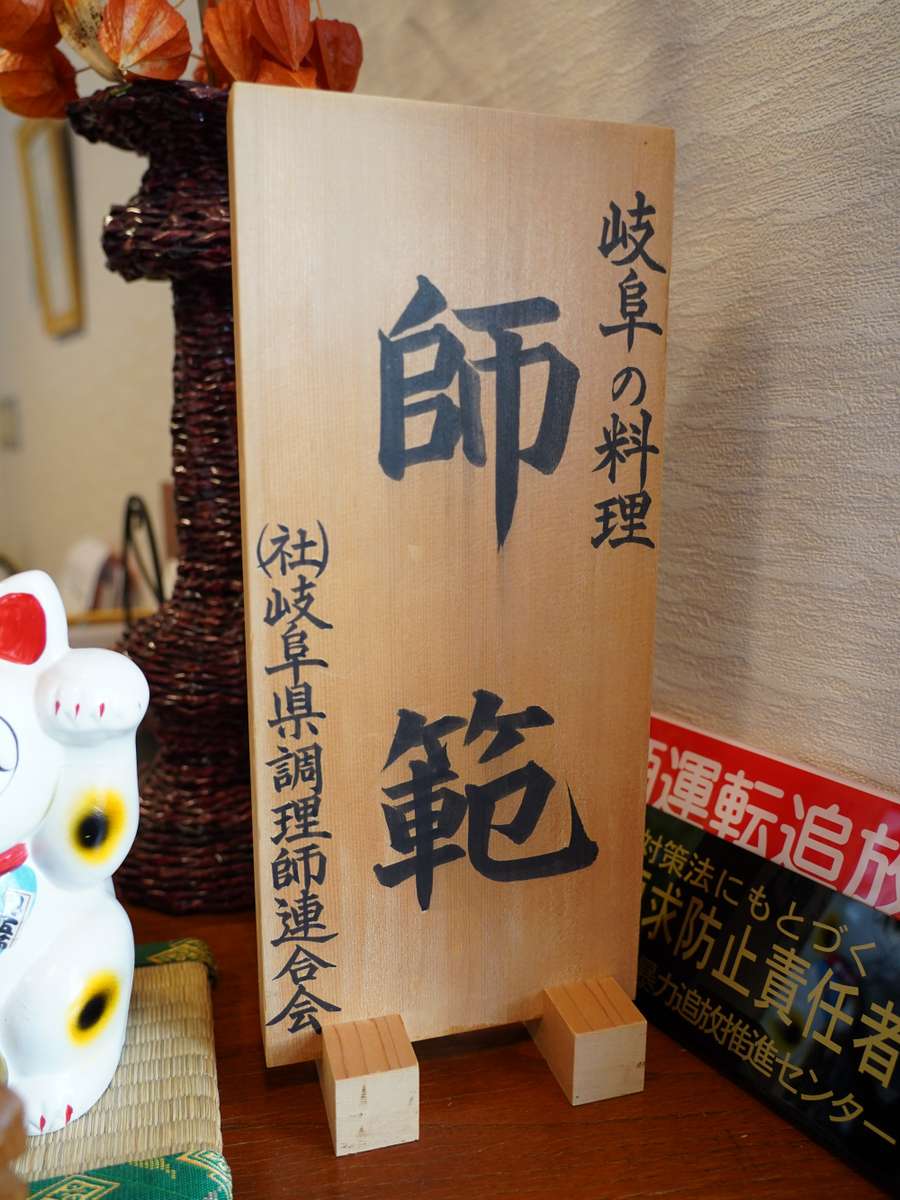 岐阜の料理
師範
(社)岐阜県調理師連合会
運転追放
対策法にもとづく
求防止責任者
暴力追放推進センター